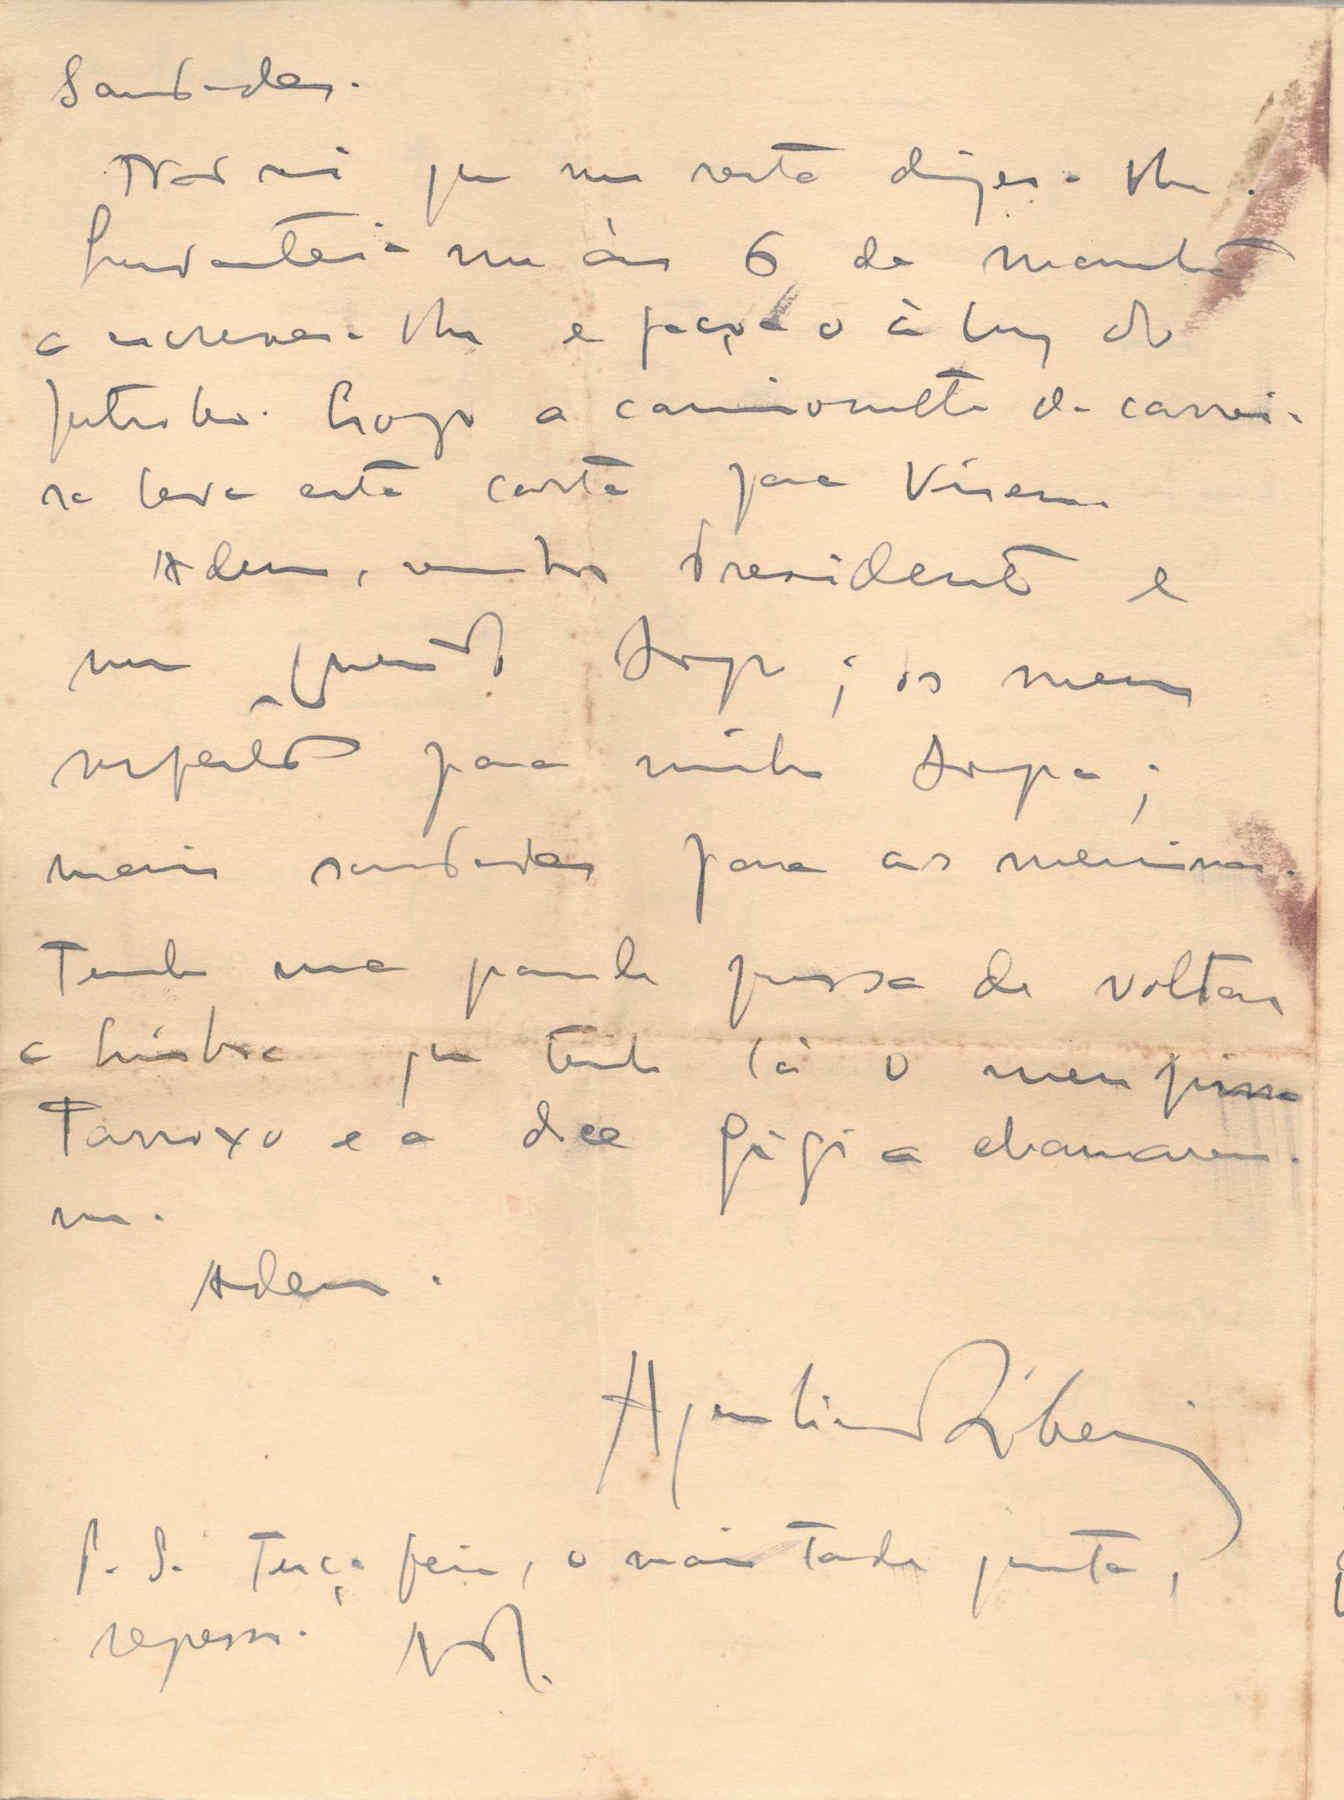 Saudades.
Não sei que me resta dizer-lhe.
Levantei-me às 6 da manhã
a escrever-lhe e faço-o à luz do
petróleo. Logo a camionette da carrei-
ra leva esta carta para Viseu.
Adeus, Presidente e
meu querido Amigo; os meus
respeitos para minha Amiga;
mais saudades para as meninas.
Tenho uma grande pressa de voltar
a Lisboa que tenho lá o meu
Parroxo e a doce Gigi a chamarem-
me.
Adeus.
Aquilino Ribeiro
P. S. Terça feira, o mais tarde quinta,
regresso. AR.